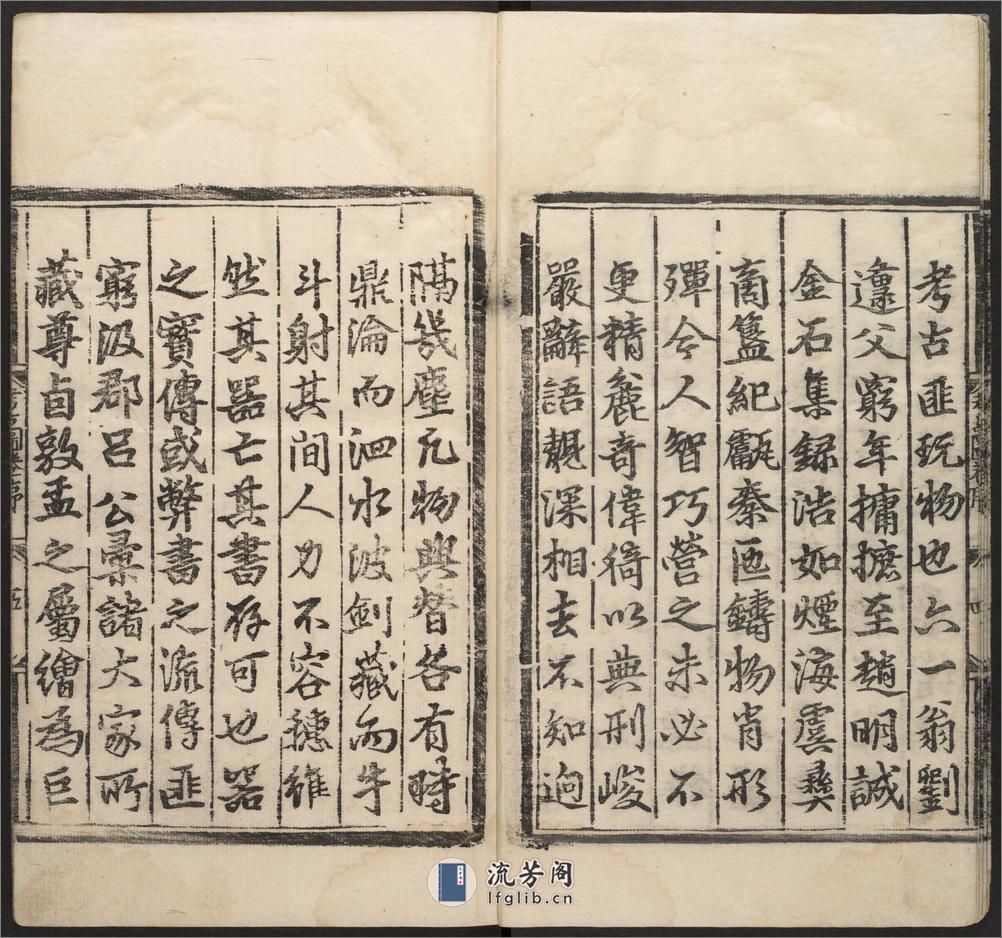 考古匪玩物也六一翁劉
邍父窮年摭摭至趙明誠
金石集録浩如煙海虞彝
商簋紀甗秦匜鑄物肖形
殫今人智巧營之未必不
更精麄奇偉猗以典刑峻
嚴辭語靚深相去不知逈
隔幾塵凡物興替各有時
鼎淪而泗水波劍藏而牛
斗射其間人力不容穗雖
然其器亡其書存可也器
之寳傳或弊書之流傳匪
窮汲郡吕公彙諸大家所
藏尊卣敦盂之屬繪為巨
流芳阁
lfglib.cn